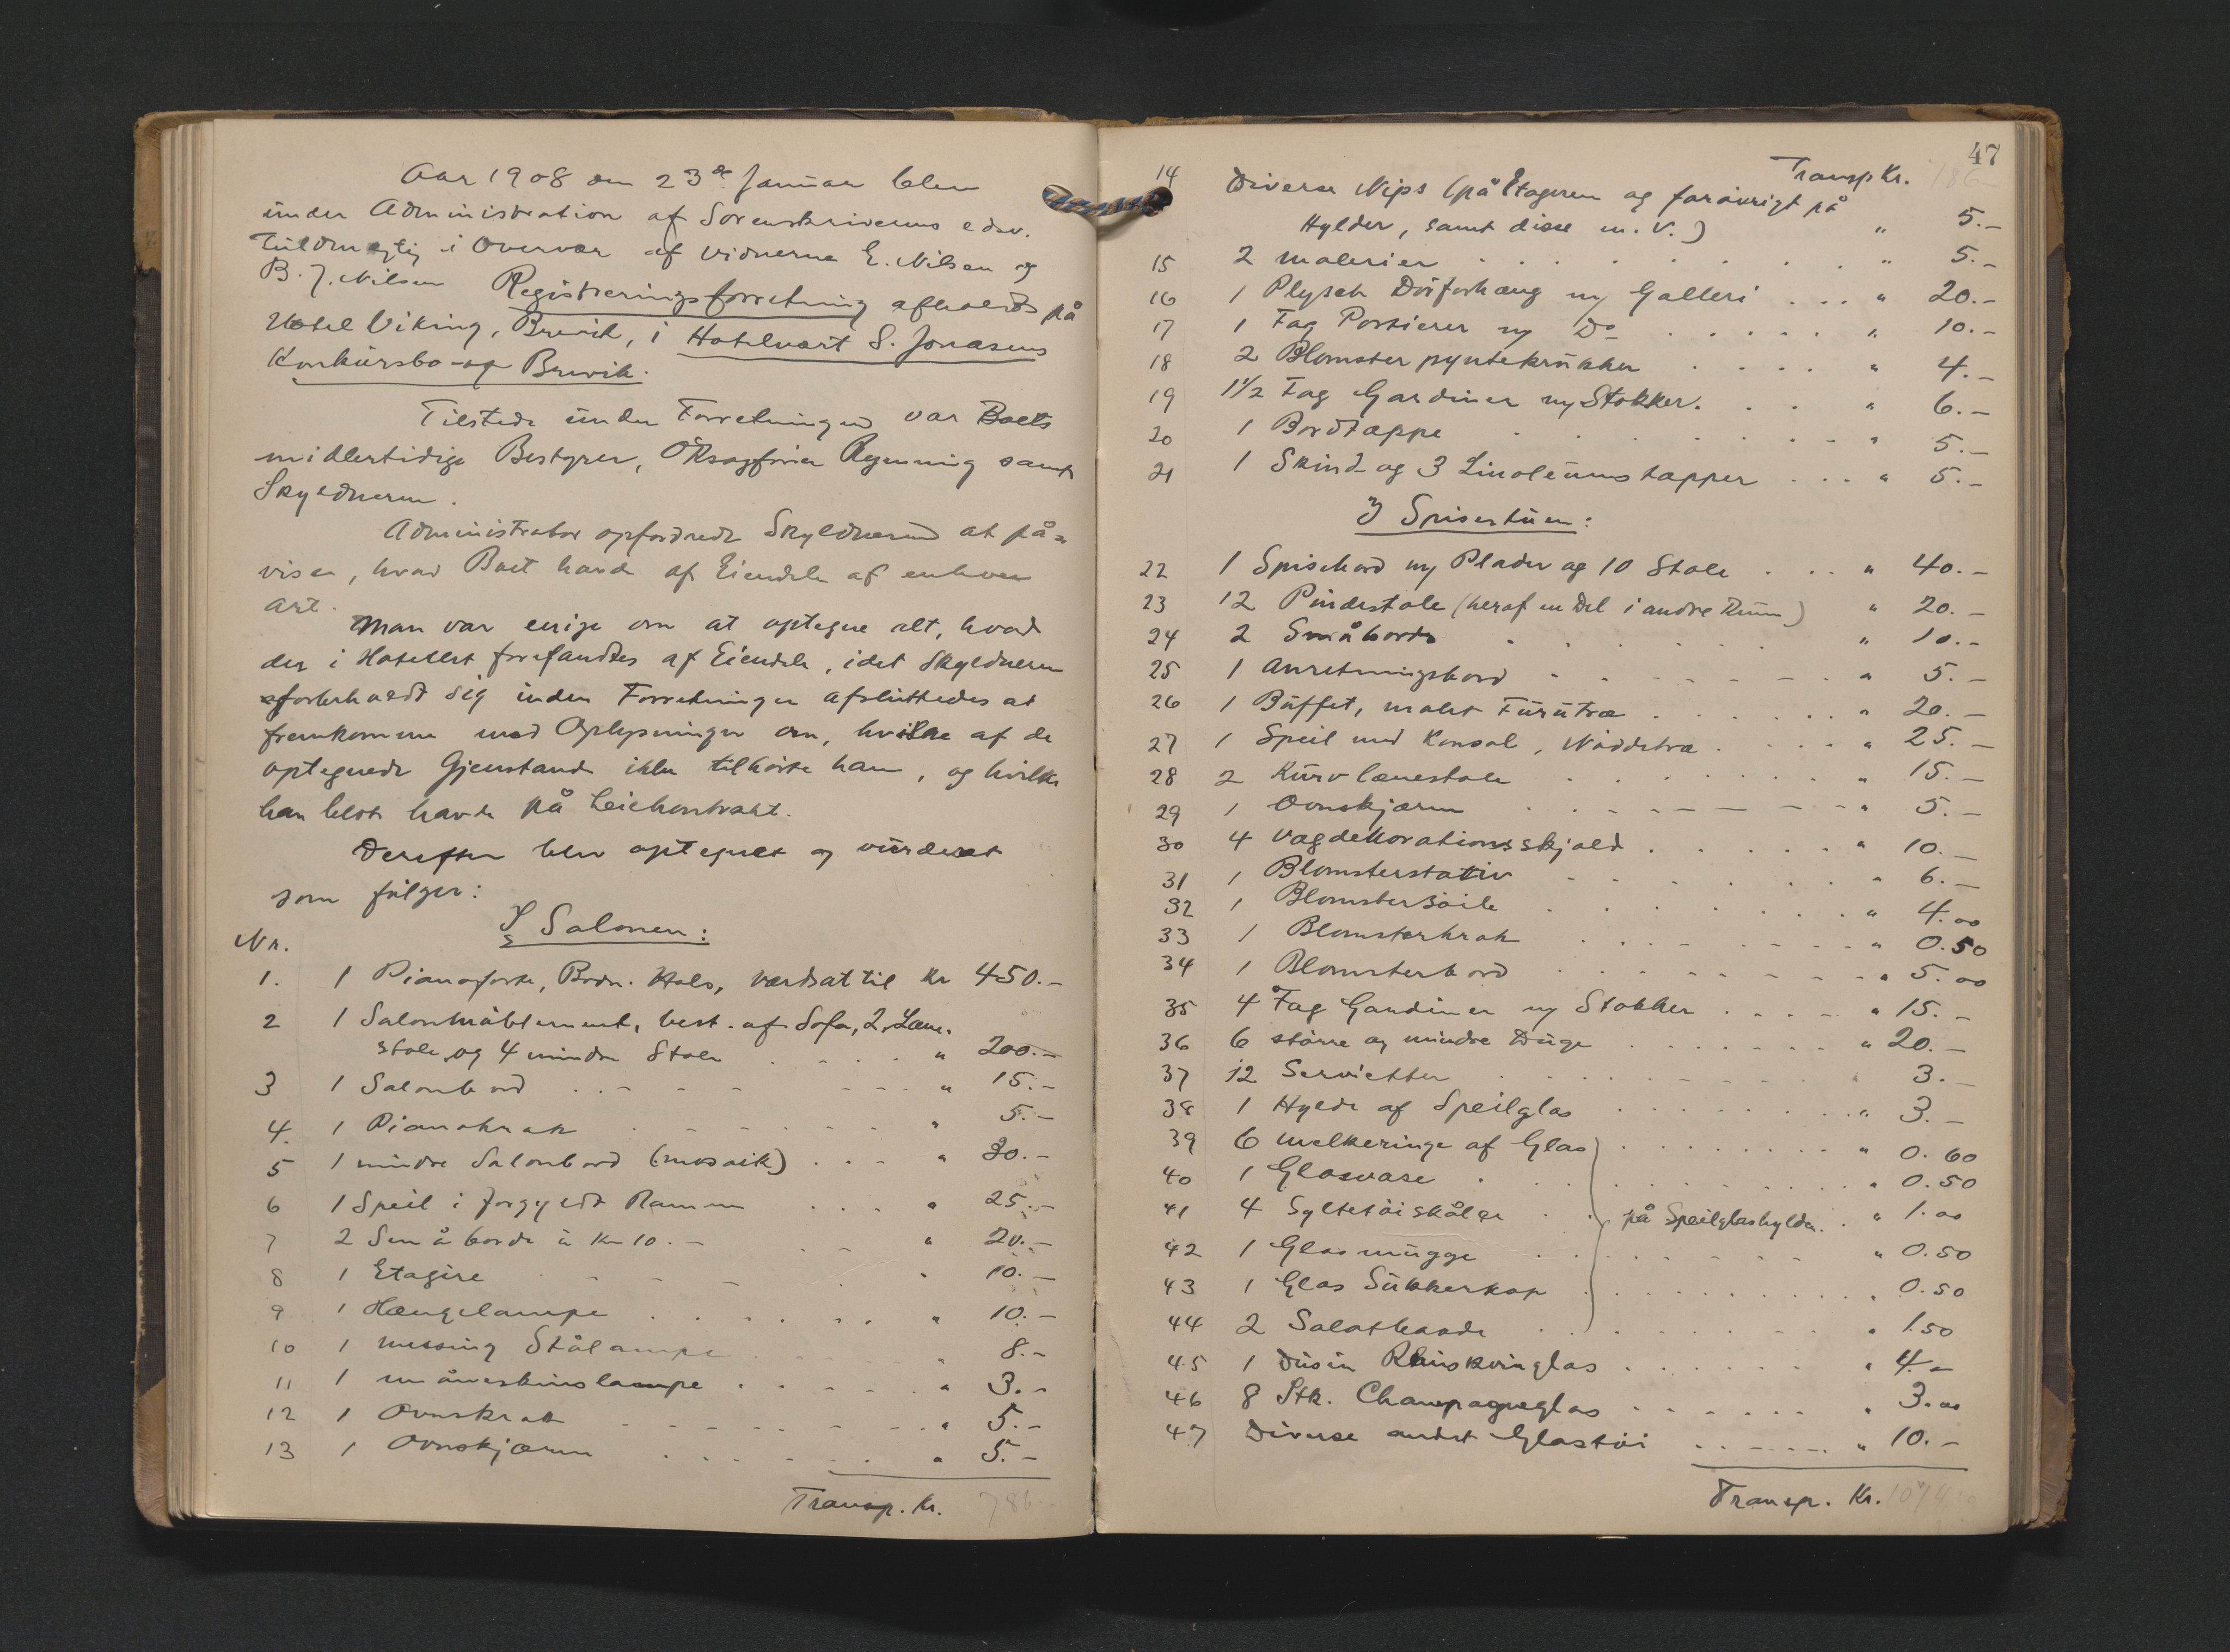 Aar 1908 den 23de Januar blev
under Administration af Sorenskriverens edsv.
Fuldmægtig i Overvær af Vidnerne E. Nilsen og
B. J. Nilsen Registreringsforretning afholdt på
Hotel Viking, Brevik, i Hotelvært S. Jonasens
Konkursbo af Brevik.
Tilstede under Forretningen var Boets
midlertidige Bestyrer, Sagfører Rynning samt
Skyldneren.
Administrator opfordrede Skyldneren at på-
vise, hvad Boet havde af Eiendele af enhver
Art.
Man var enige om at optegne alt, hvad
der i Hotellet forefandtes af Eiendele, idet Skyldneren
forbeholdt sig inden Forretningen afsluttedes at
fremkomme med Oplysninger om, hvilke af de
optegnede Gjenstande ikke tilhørte ham, og hvilke
han blot havde på Leiekontrakt.
Derefter blev optegnet og vurderet
som følger:
I Salonen:
Nr.
1. 1 Pianoforte, Brdr. Hals, værdsat til Kr 450.-
2 1 Salonmøblement, best. af Sofa, 2 Læne-
stole og 4 mindre Stole . . . . " 200.-
3 1 Salonbord . . . . " 15.-
4. 1 Pianokrak . . . . " 5.-
5 1 mindre Salonbord (mosaik) . . . " 30.-
6 1 Speil i forgyldt Ramme . . . " 25.-
7 2 Småborde à Kr 10.- . . " 20.-
8 1 Etagère . . . . " 10.-
9 1 Hængelampe . . . . . " 10.-
10 1 messing Stålampe . . . . " 8.-
11 1 måneskinslampe . . . . . " 3.-
12 1 Ovnskrak . . . . . " 5.-
13 1 Ovnskjærm . . . . . " 5.-
Transp. Kr. 786.-
47
Transp Kr. 786
14 Diverse Nips (på Etageren og forøvrigt på
Hylder, samt disse m. V.) " 5.-
15 2 malerier . . . . . . " 5.-
16 1 Plysch Dørforhæng m/ Galleri . . . " 20.-
17 1 Fag Portierer m/ Do . . . . . " 10.-
18 2 Blomster pyntekrukker . . . . " 4.-
19 1½ Fag Gardiner m/ Stokker. . . " 6.-
20 1 Bordtæppe . . . . . . " 5.-
21 1 Skind- og 3 Linoleumstæpper . . . " 5.-
I Spisestuen:
22 1 Spisebord m/ Plader og 10 Stole . . . " 40.-
23 12 Pindestole (heraf en Del i andre Rum) " 20.-
24 2 Småborde . . . . . " 10.-
25 1 Anretningsbord . . . . . " 5.-
26 1 Büffet, malet Furutræ . . . . . " 20.-
27 1 Speil med Konsol, Nøddetræ . . . . " 25.-
28 2 Kurvlænestole . . . . . " 15.-
29 1 Ovnskjærm . . . . . " 5.-
30 4 Vægdekorationsskjold . . . . . " 10.-
31 1 Blomsterstativ . . . . . " 6.-
32 1 Blomstersøile . . . . . " 4.00
33 1 Blomsterkrak . . . . . " 0.50
34 1 Blomsterbord . . . . . " 5.00
35 4 Fag Gardiner m/ Stokker . . . . " 15.-
36 6 større og mindre Duge . . . . . " 20.-
37 12 Servietter . . . . . " 3.-
38 1 Hylde af Speilglas . . . . . " 3.-
39 6 melkeringe af Glas . . . . . " 0.60
40 1 Glasvase . . . . . " 0.50
41 4 Syltetøiskåler . . på Speilglashylden. . " 1.00
42 1 Glasmugge . . . . . " 0.50
43 1 Glas Sukkerkop . . . . . " 0.50
44 2 Salatbaade . . . . . " 1.50
45 1 Dusin Rhinskvinglas . . . . . " 4.-
46 8 Stk. Champagneglas . . . . . " 3.00
47 Diverse andet Glastøi . . . . . " 10.-
Transp. Kr. 1074